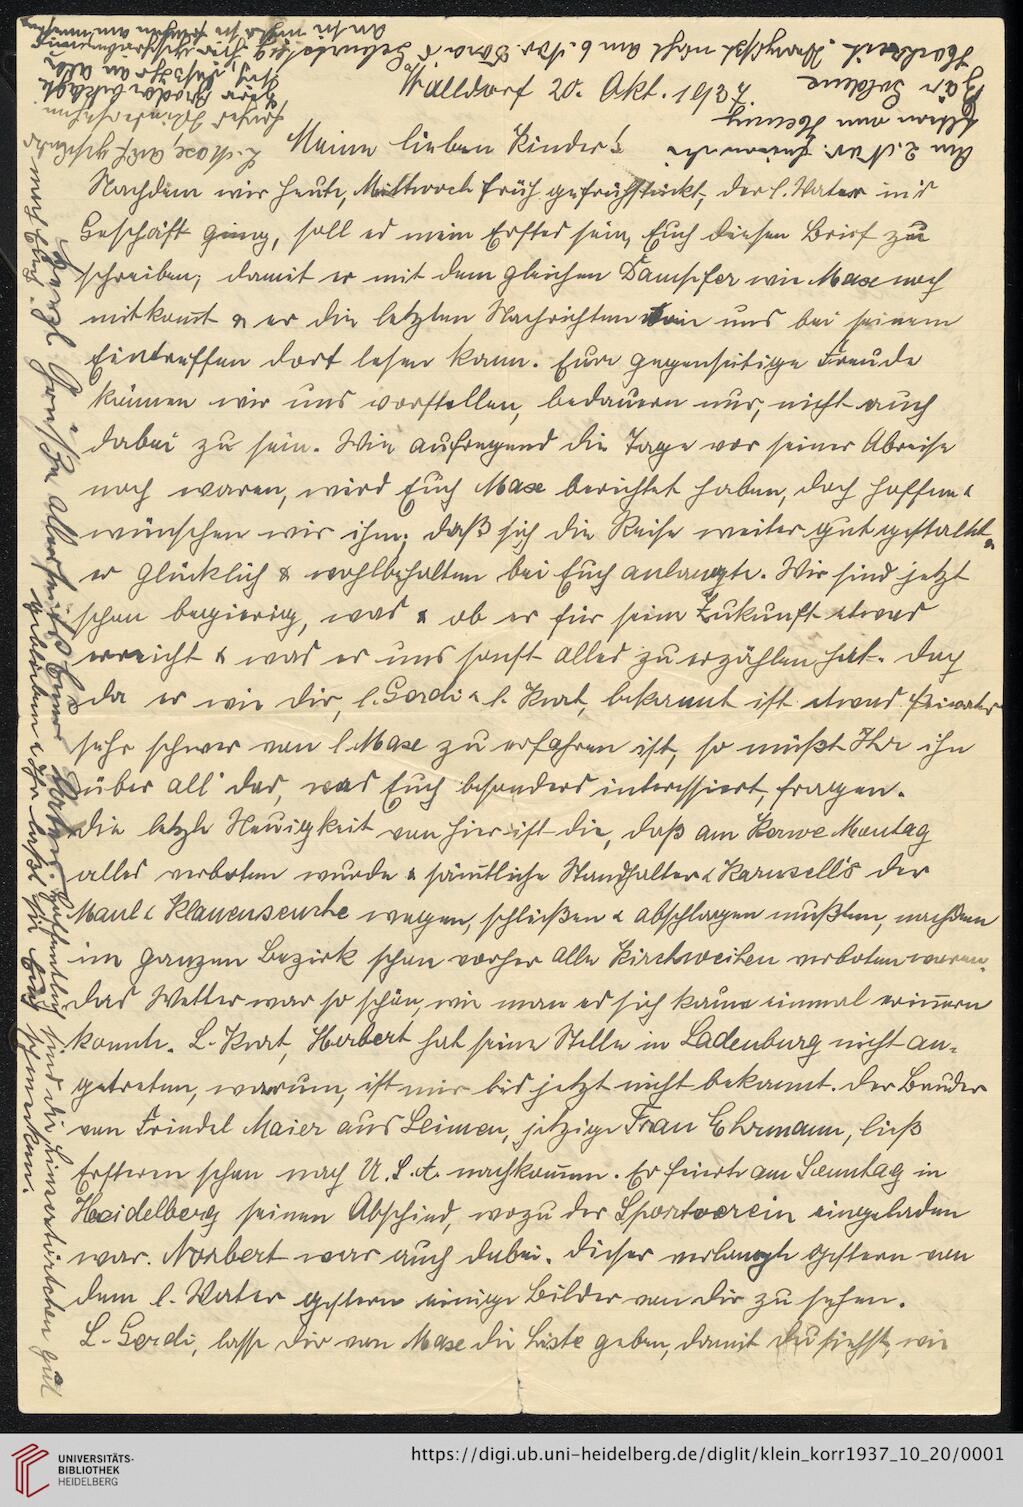 Walldorf 20. Okt. 1937.
Meine lieben Kinder!
Nachdem wir heute, Mittwoch früh gefrühstückt, der l. Vater in's
Geschäft ging, soll es mein Erstes sein, Euch diesen Brief zu
schreiben, damit er mit dem gleichen Dampfer wie Maxe noch
mitkom̅t & er die letzten Nachrichten von uns bei seinem
Eintreffen dort lesen kann. Eure gegenseitige Freude
können wir uns vorstellen, bedauern nur, nicht auch
dabei zu sein. Wie aufregend die Tage vor seiner Abreise
noch waren, wird Euch Maxe berichtet haben, doch hoffen &
wünschen wir ihm, daß sich die Reise weiter gut gestaltet &
er glücklich & wohlbehalten bei Euch anlangte. Wir sind jetzt
schon begierig, was & ob er für seine Zukunft etwas
erreicht & was er uns sonst alles zu erzählen hat. Doch
da er wie Dir, l. Gerdi & l. Kurt, bekannt ist etwas Privates
sehr schwer von l. Maxe zu erfahren ist, so müßt Ihr ihn
über all' das, was Euch besonders interessiert, fragen.
Die letzte Neuigkeit von hier ist die, daß am Kerwe Montag
alles verboten wurde & säm̅tliche Standhalter & Karusell's der
Maul & Klauenseuche wegen, schließen & abschlagen mußten, nachdem
im ganzen Bezirk schon vorher alle Kirchweihen verboten waren.
Das Wetter war so schön, wie man es sich kaum einmal erin̅ern
konnte. L. Kurt, Herbert hat seine Stelle in Ladenburg nicht an-
getreten, warum, ist mir bis jetzt nicht bekannt. Der Bruder
von Friedel Maier aus Leimen, jetzige Frau Ehrmann, ließ
Ersteren schon nach U.S.A. nachkom̅en. Er feierte am Sonntag in
Heidelberg seinen Abschied, wozu der Sportverein eingeladen
war. Norbert war auch dabei. Dieser verlangte gestern von
dem l. Vater gestern einige Bilder von Dir zu sehen.
L. Gerdi, lasse Dir von Maxe die Liste geben, damit Du siehst, wie
Herzl. Grüße allerseits Eure
Hoffentlich sind die Linzertörtchen gut
geblieben & Ihr laßt sie Euch schmecken.
UNIVERSITÄTS-
BIBLIOTHEK
HEIDELBERG
https://digi.ub.uni-heidelberg.de/diglit/klein_korr1937_10_20/0001